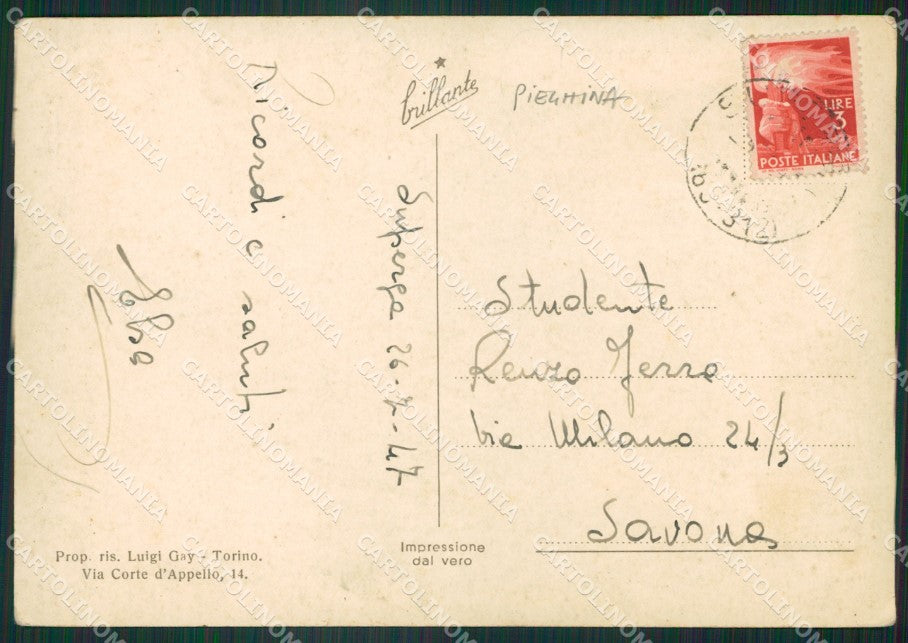 brillante
PIEGHINA
LIRE
3
POSTE ITALIANE
Ricordi e saluti
Superga 26-7-47
Studente
Renzo Ferro
Via Milano 24/3
Savona
Impressione
dal vero
Prop. ris. Luigi Gay - Torino.
Via Corte d'Appello, 14.
CARTOLINOMANIA